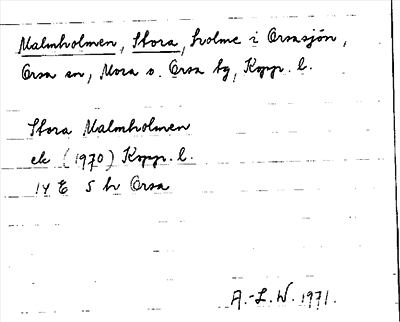 Malmholmen, Stora, holme i Orsasjön,
Orsa sn, Mora o. Orsa tg, Kopp. l.
Stora Malmholmen
ek (1970) Kopp. l.
14 E 5 h Orsa
A.-L. W. 1971.